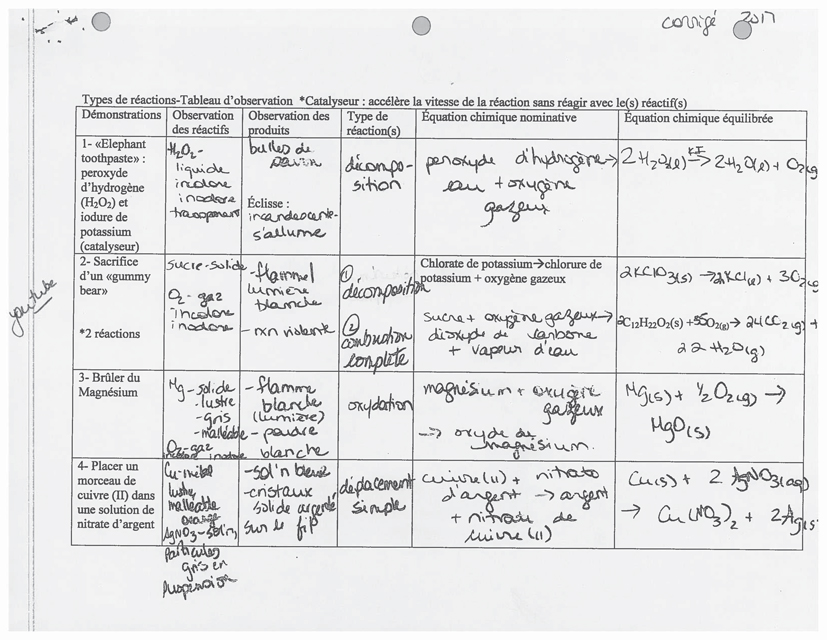 corrigé 2017
Types de réactions-Tableau d'observation *Catalyseur : accélère la vitesse de la réaction sans réagir avec le(s) réactif(s)
Démonstrations
Observation
des réactifs
Observation des
produits
Type de
réaction(s)
Équation chimique nominative
Équation chimique équilibrée
1- «Elephant
toothpaste» :
peroxyde
d'hydrogène
(H₂O₂) et
iodure de
potassium
(catalyseur)
H₂O₂ -
liquide
incolore
inodore
transparent
bulles de
savon
Éclisse :
incandescente-
s'allume
décompo-
sition
peroxyde d'hydrogène →
eau + oxygène
gazeux
2H₂O₂(l) KI→ 2H₂O(l) + O₂(g
youtube
2- Sacrifice
d'un «gummy
bear»
*2 réactions
sucre-solide
O₂- gaz
incolore
inodore
-flamme/
lumière
blanche
- rxn violente
①
décomposition
②
combustion
complète
Chlorate de potassium→chlorure de
potassium + oxygène gazeux
sucre + oxygène gazeux →
dioxyde de carbone
+ vapeur d'eau
2KClO₃(s) → 2KCl(s) + 3O₂(g
C₁₂H₂₂O₁₁(s) + O₂(g) → CO₂(g) +
H₂O(g)
3- Brûler du
Magnésium
Mg-solide
-lustre
-gris
-malléable
O₂-gaz
inodore
- flamme
blanche
(lumière)
- poudre
blanche
oxydation
magnésium + oxygène
gazeux
→ oxyde de
magnésium.
Mg(s) + ½O₂(g) →
MgO(s)
4- Placer un
morceau de
cuivre (II) dans
une solution de
nitrate d'argent
Cu-métal
lustre
malléable
orange
AgNO₃-sol'n,
particules
gris en
suspension
-sol'n bleue
-cristaux
solide argenté
sur le fil
déplacement
simple
cuivre (II) + nitrate
d'argent → argent
+ nitrate de
cuivre (II)
Cu(s) + 2 AgNO₃(aq)
→ Cu(NO₃)₂ + 2Ag(s